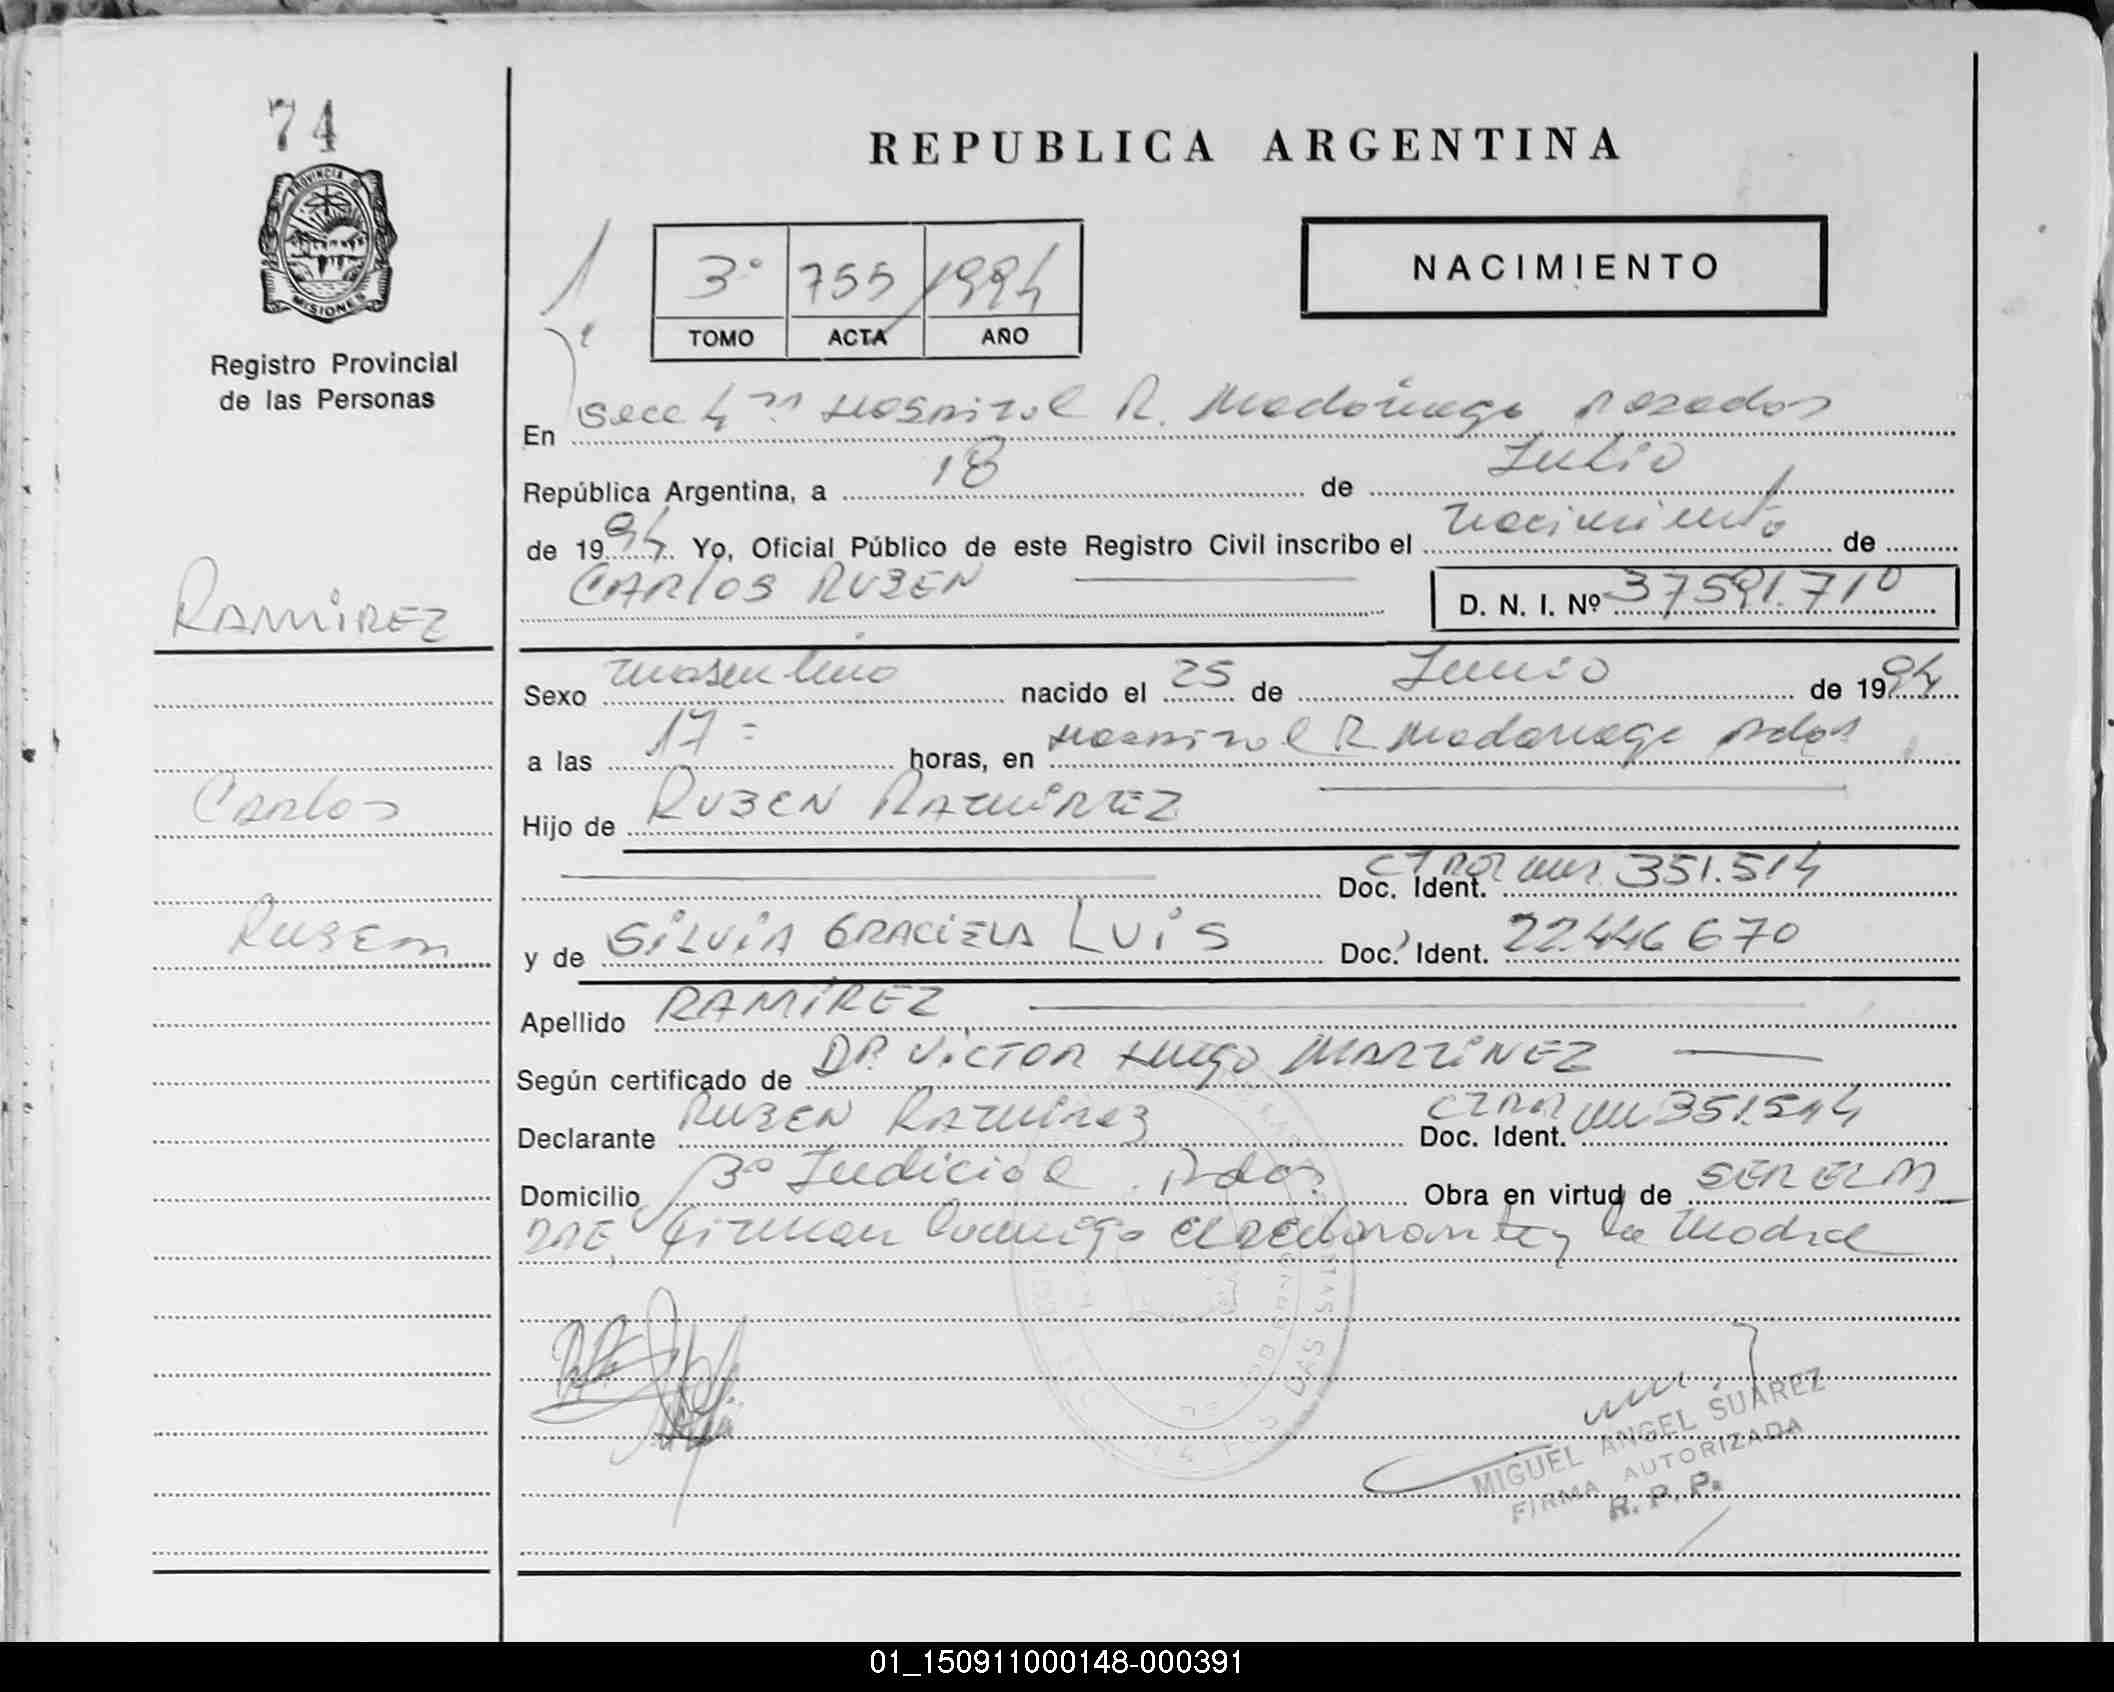 74
PROVINCIA DE
MISIONES
Registro Provincial
de las Personas
REPUBLICA ARGENTINA
3° 755 1994
TOMO ACTA AÑO
NACIMIENTO
En Secc 4ta Hospital R. Madariaga Posadas
República Argentina, a 18 de Julio
de 1994 Yo, Oficial Público de este Registro Civil inscribo el nacimiento de
CARLOS RUBEN D. N. I. Nº 37591.710
RAMIREZ
Sexo masculino nacido el 25 de Junio de 1994
a las 17 horas, en Hospital R Madariaga Pdas
Carlos
Hijo de RUBEN RAMIREZ
Doc. Ident. 351.514
Ruben
y de SILVIA GRACIELA LUIS Doc. Ident. 22.446670
Apellido RAMIREZ
Según certificado de DR. VICTOR HUGO MARTINEZ
Declarante RUBEN RAMIREZ Doc. Ident. 351.514
Domicilio 3° Judicial Pdas Obra en virtud de SER EL PA
DRE, firman conmigo el declarante y la madre
MIGUEL ANGEL SUAREZ
FIRMA AUTORIZADA
R. P. P.
01_150911000148-000391